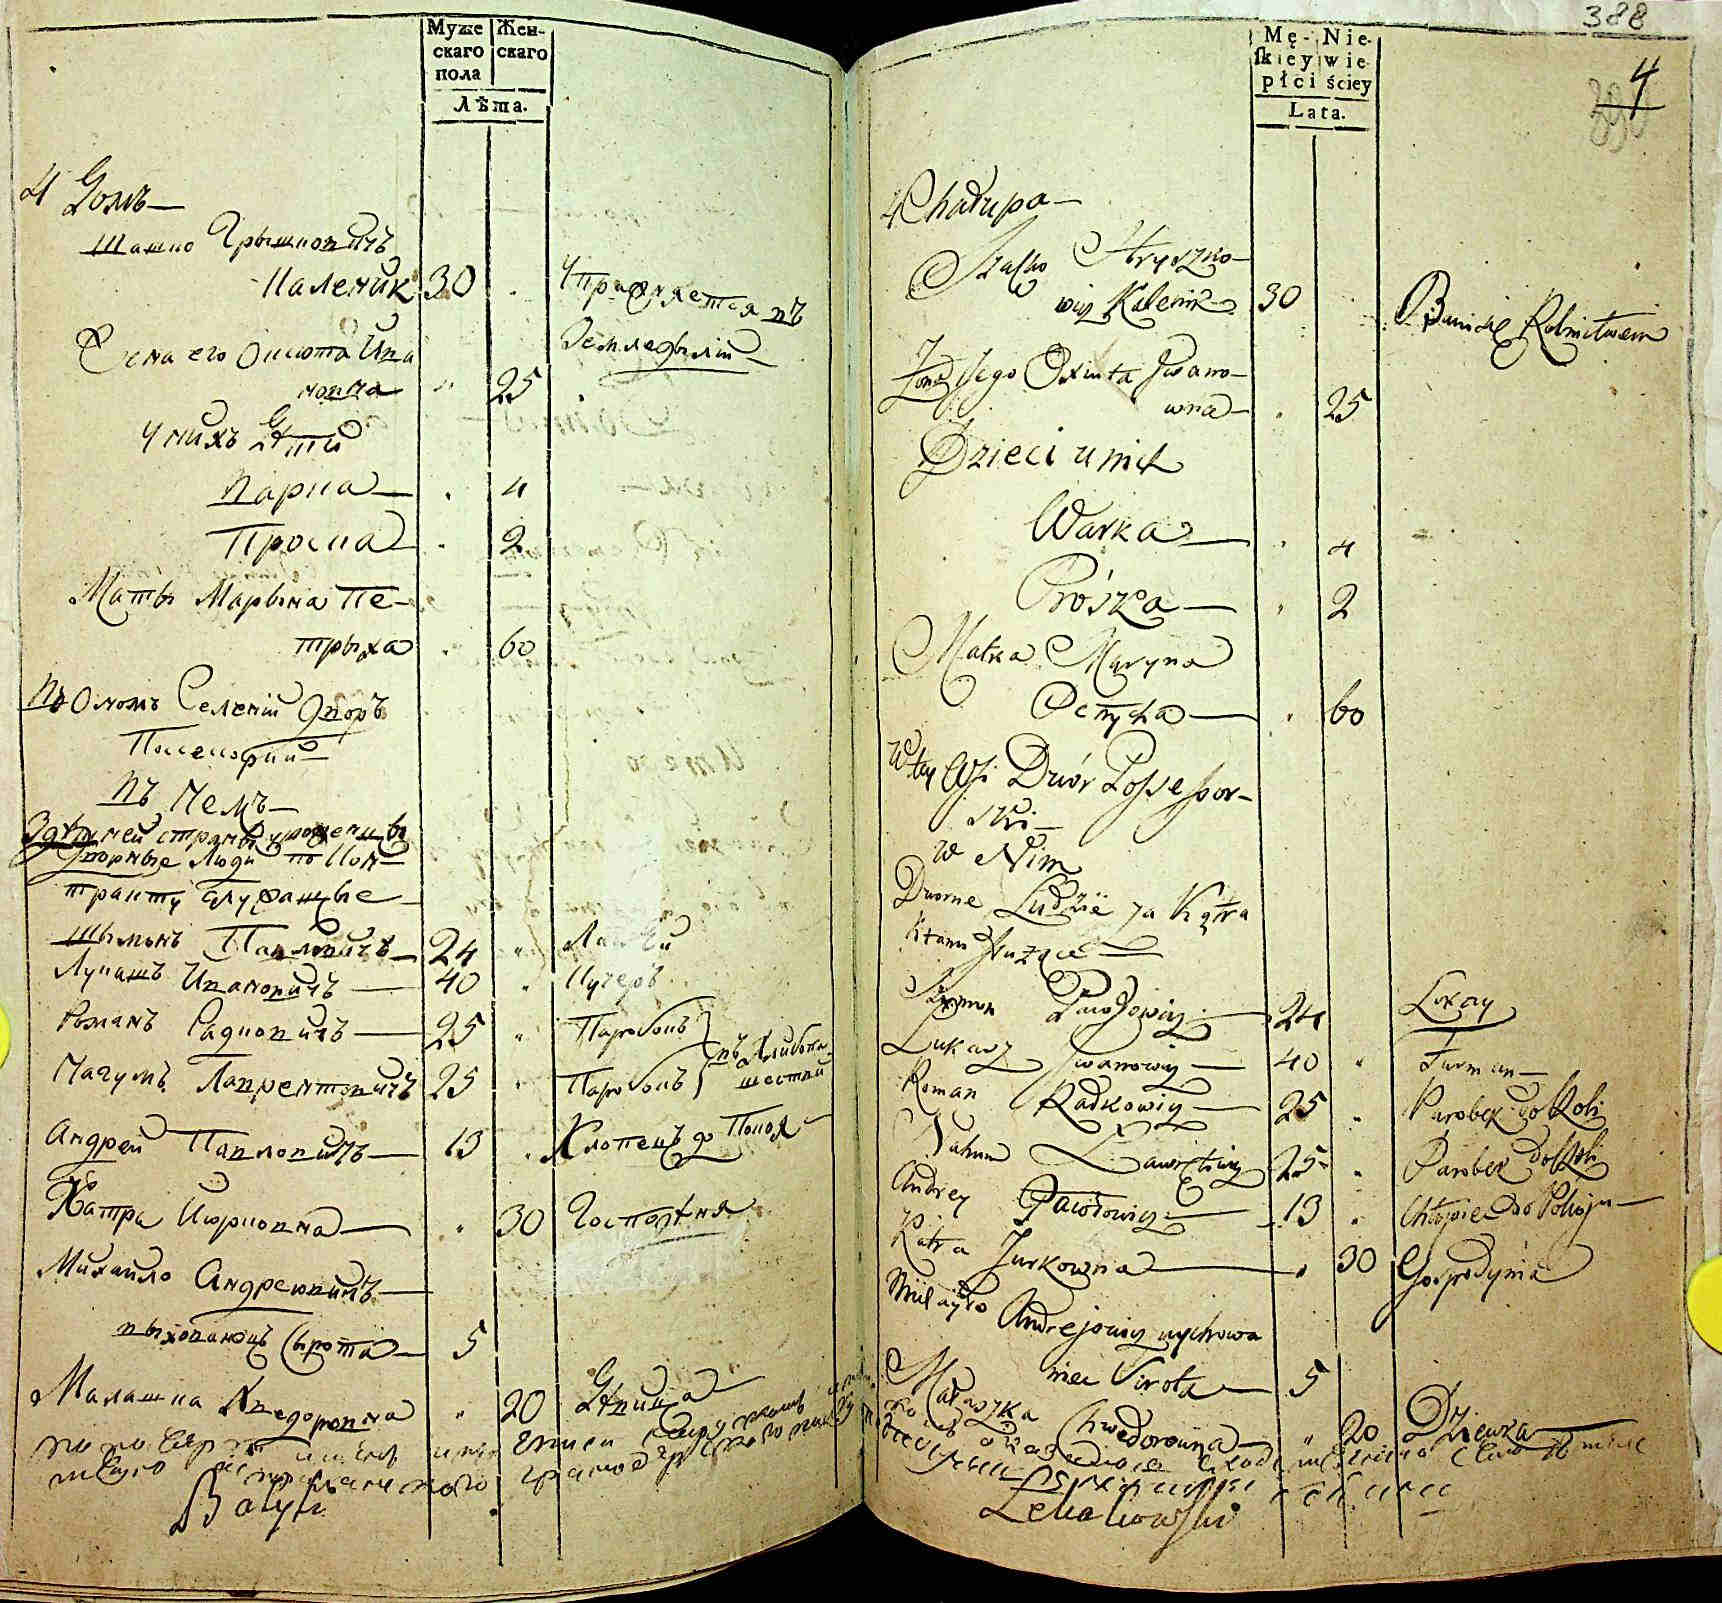 Муже Жен-
скаго скаго
пола
Лѣта.
4 Домъ
Шашко Грышковичъ
Каленик 30 Упражняется въ
Земледѣліи
Жена его Оксюта Ива
новна " 25
У нихъ Дѣти
Варка 4
Проска 2
Мать Марына Пе-
трыха 60
Въ Ономъ Селеніи Дворъ
Посесорскій
въ Немъ
Дворные Люди по Кон-
тракту Служащые
Шымонъ Павловичъ 24 " Лакей
Лукашъ Ивановичъ 40 Кучеръ
Романъ Радковичъ 25 " Паробокъ
въ Хлибопа-
шестви
Нагумъ Лаврентовичъ 25 " Паробокъ
Андрей Павловичъ 13 Хлопецъ до Покоя
Катра Июрковна " 30 Господыня
Михайло Андреювичъ
выхованецъ Сырота 5
Малашка Хведоровна " 20 Дѣвица
388
Mę- Nie-
skiey wie-
płci ściey
Lata.
4
4 Chałupa
Szasko Hryszko-
wicz Kalenik 30 Bawi się Rolnictwem
Żona Jego Oxiuta Iwano-
wna 25
Dzieci u nich
Warka 4
Prószka 2
Matka Maryna
Petrycha 60
W tey Wsi Dwór Possessor-
ski
w Nim
Dworne Ludzie za Kątra
ktami Służące
Szymon Pawłowicz 24 Lokay
Lukasz Iwanowicz 40 " Furman
Roman Radkowicz 25 Parobek do Roli
Nahum Lawretowicz 25 Parobek do Roli
Andrey Pawłowicz 13 Chłopiec do Pokoju
Katra Jurkowna " 30 Gospodynia
Michayło Andrejowicz wychowa
niec Sirota 5
Małaszka
Chwedorowna " 20 Dziewka